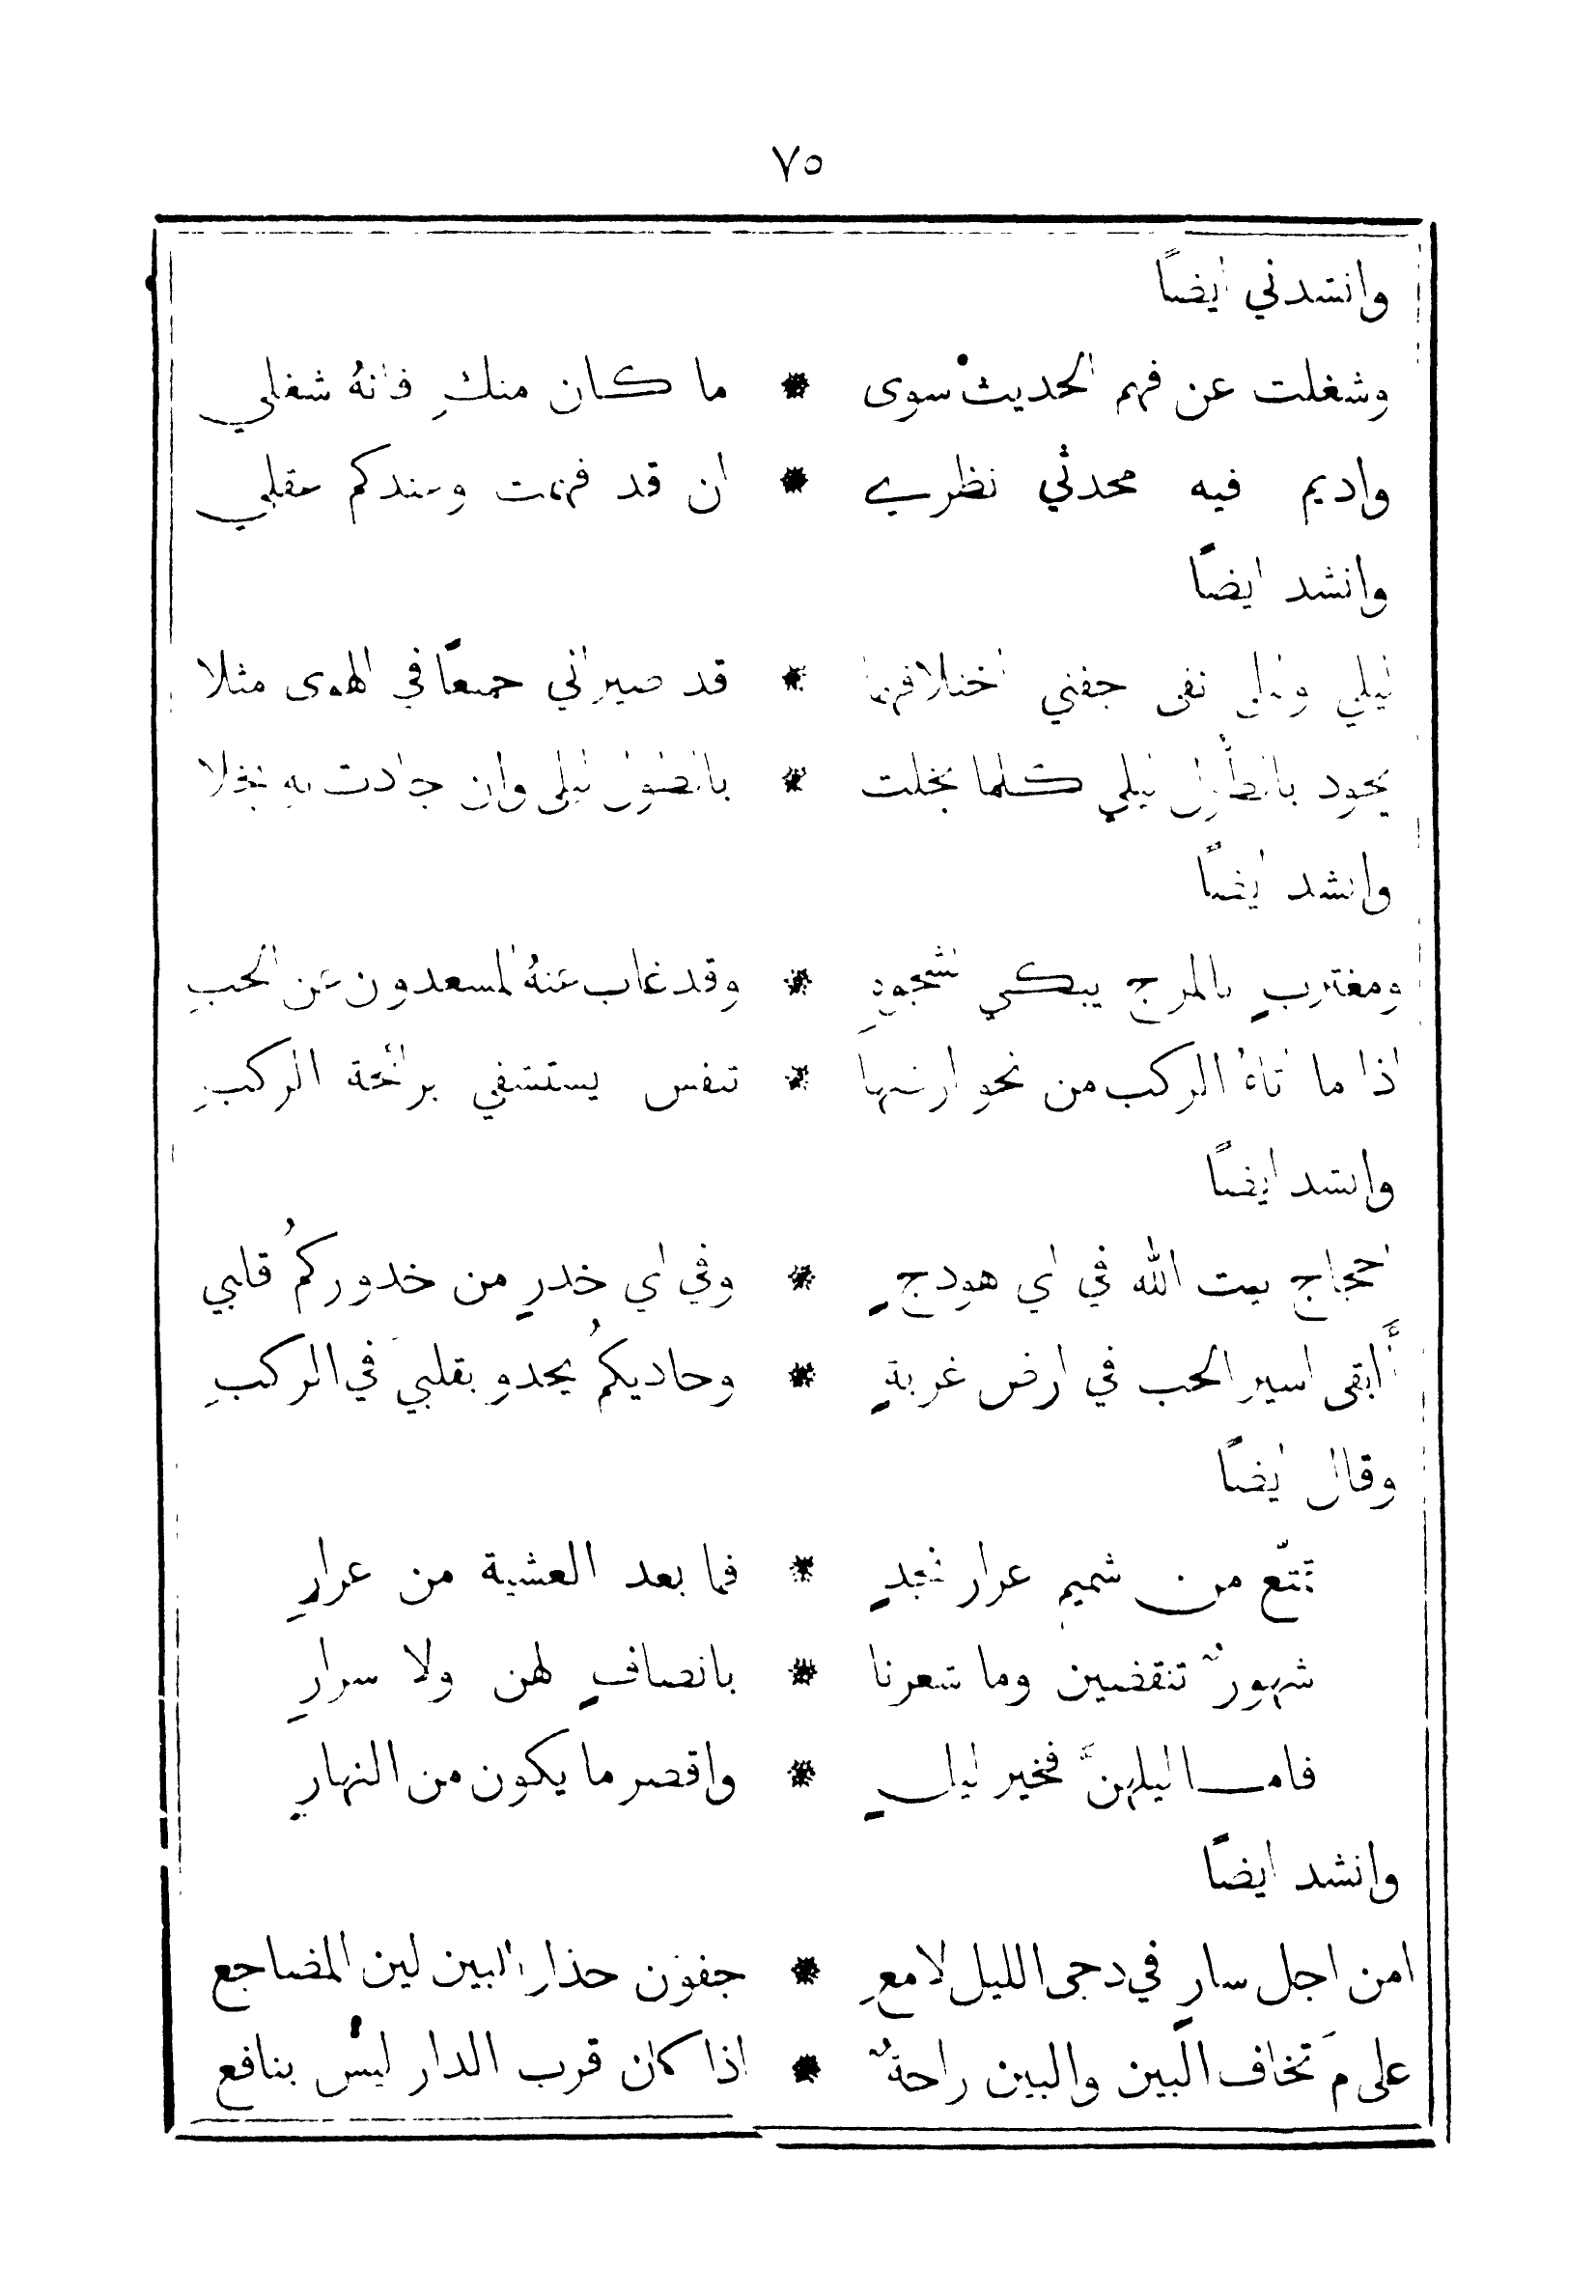 ٧٥
وانشدني ايضاً
وشغلت عن فهم الحديث سوى * ما كان منكِ فانهُ شغلي
واديم فيه محدثي نظري * ان قد فهمت وعندكم عقلي
وانشد ايضاً
ليلي وليلى نفى جفني اختلافهما * قد صيراني جميعاً في الهوى مثلا
يجود بالطول ليلي كلما بخلت * بالطول ليلى وان جادت به بخلا
وانشد ايضاً
ومغتربٍ بالمرج يبكي بشجوهِ * وقد غاب عنهُ المسعدون عن الحبِ
اذا ما اتاهُ الركب من نحو ارضها * تنفس يستشفي برائحة الركبِ
وانشد ايضاً
احجاج بيت الله في اي هودجٍ * وفي اي خدرٍ من خدوركمُ قلبي
أابقى اسير الحب في ارض غربةٍ * وحاديكمُ يحدو بقلبيَ في الركبِ
وقال ايضاً
تمتّع من شميمِ عرار نجدٍ * فما بعد العشية من عرارِ
شهورٌ تنقضين وما شعرنا * بانصافٍ لهن ولا سرارِ
فاما ليلهنَّ فخير ليلٍ * واقصر ما يكون من النهارِ
وانشد ايضاً
امن اجل سارٍ في دجى الليل لامعِ * جفون حذار البين لين المضاجع
على مَ تخاف البين والبين راحةٌ * اذا كان قرب الدار ليس بنافع